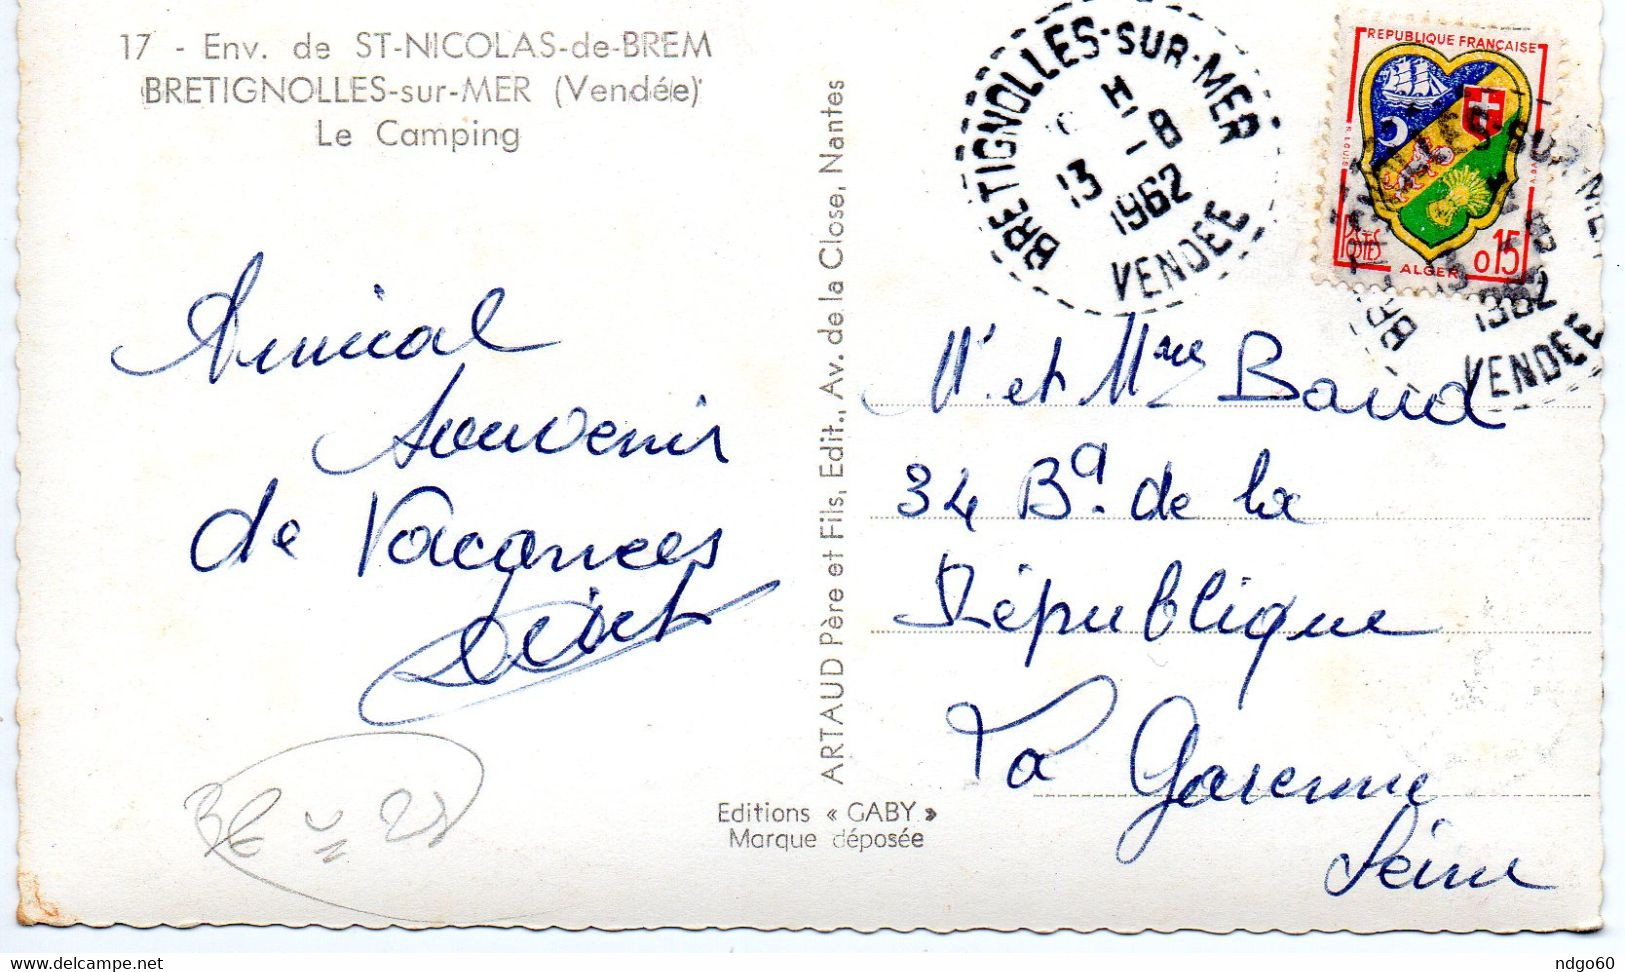 17 - Env. de ST-NICOLAS-de-BREM
BRETIGNOLLES-sur-MER (Vendée)
Le Camping
Amical
souvenir
de Vacances
ARTAUD Père et Fils, Edit., Av. de la Close, Nantes
Editions « GABY »
Marque déposée
BRETIGNOLLES-SUR-MER
13 -8
1962
VENDEE
REPUBLIQUE FRANÇAISE
POSTES
ALGER
0,15
1962
VENDEE
Mr et Mme Baud
34 Bd. de la
République
La Garenne
Seine
ndgo60